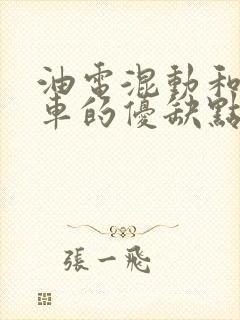 油電混動和
車的優缺點
張一飛